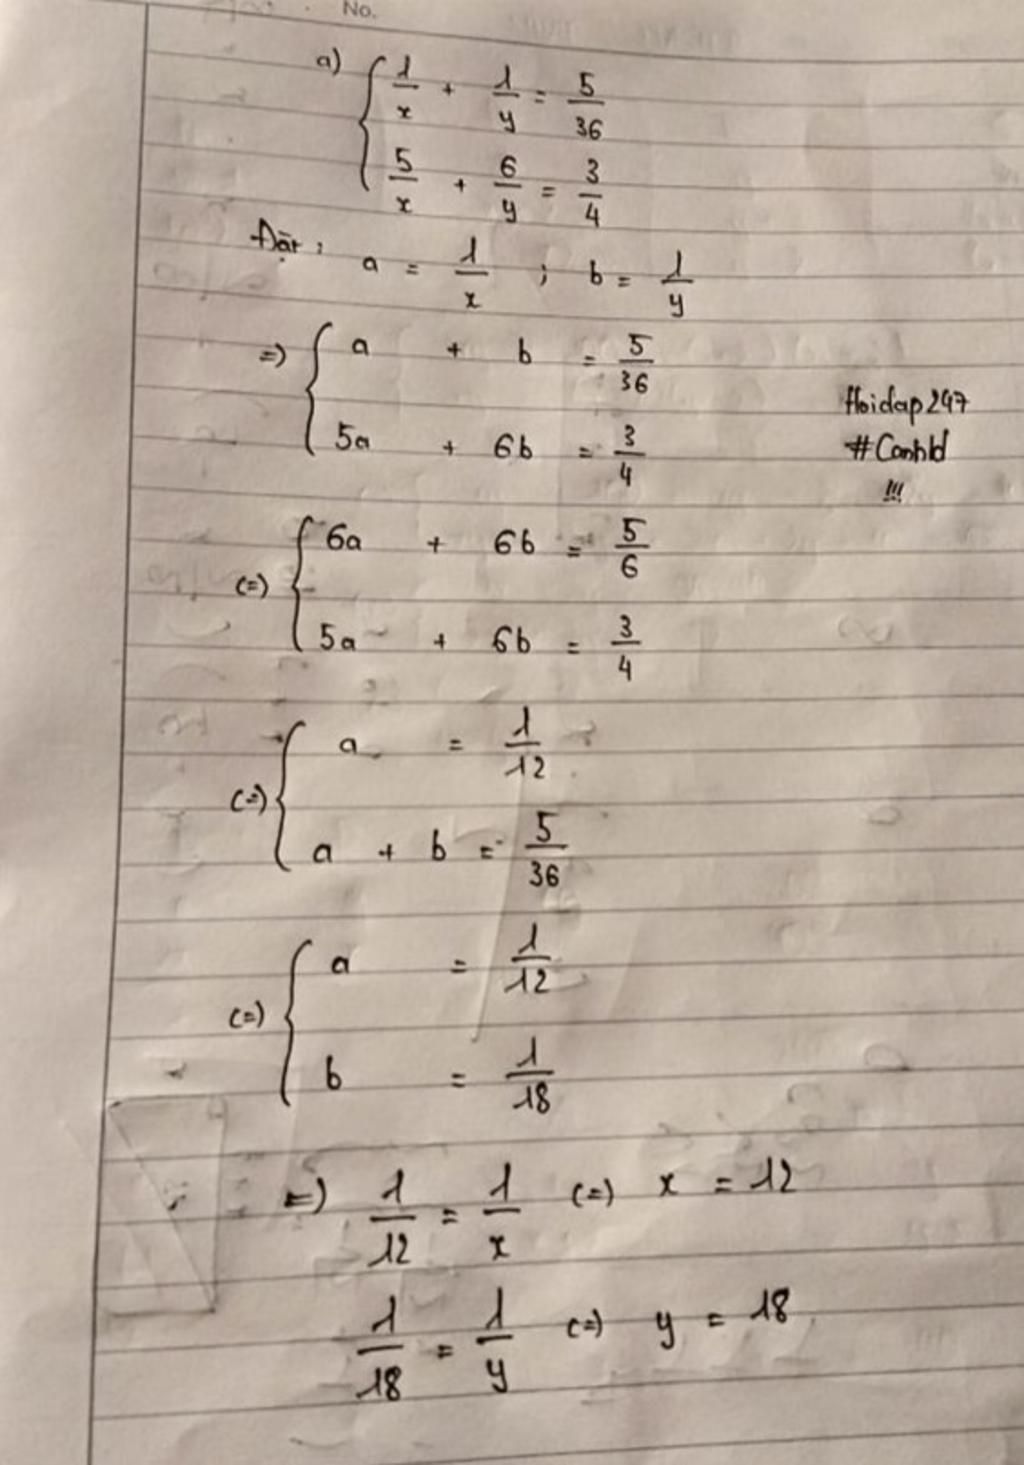 No.
a) { 1/x + 1/y = 5/36
5/x + 6/y = 3/4
Đặt: a = 1/x ; b = 1/y
=) { a + b = 5/36
5a + 6b = 3/4
Hoidap247
#Canhld
!!!
(=) { 6a + 6b = 5/6
5a + 6b = 3/4
(=) { a = 1/12
a + b = 5/36
(=) { a = 1/12
b = 1/18
=) 1/12 = 1/x (=) x = 12
1/18 = 1/y (=) y = 18